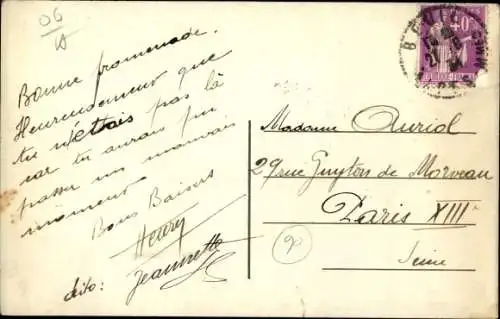 06
A
Bonne promenade.
Heureusement que
tu n'étais pas là
car tu aurais pu
passer un mauvais
moment.
Bons Baisers
Henry
dito: Jeannette
40c
Madame Auriol
29 rue Guyton de Morveau
Paris XIII
Seine